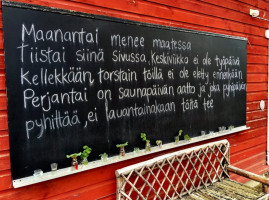 Maanantai menee maatessa
Tiistai siinä sivussa, Keskiviikko ei ole työpäivä
Kellekkään, torstain töillä ei ole eletty ennenkään
Perjantai on saunapäivän aatto ja joka pyhäpäivän
pyhittää, ei lauantainakaan töitä tee